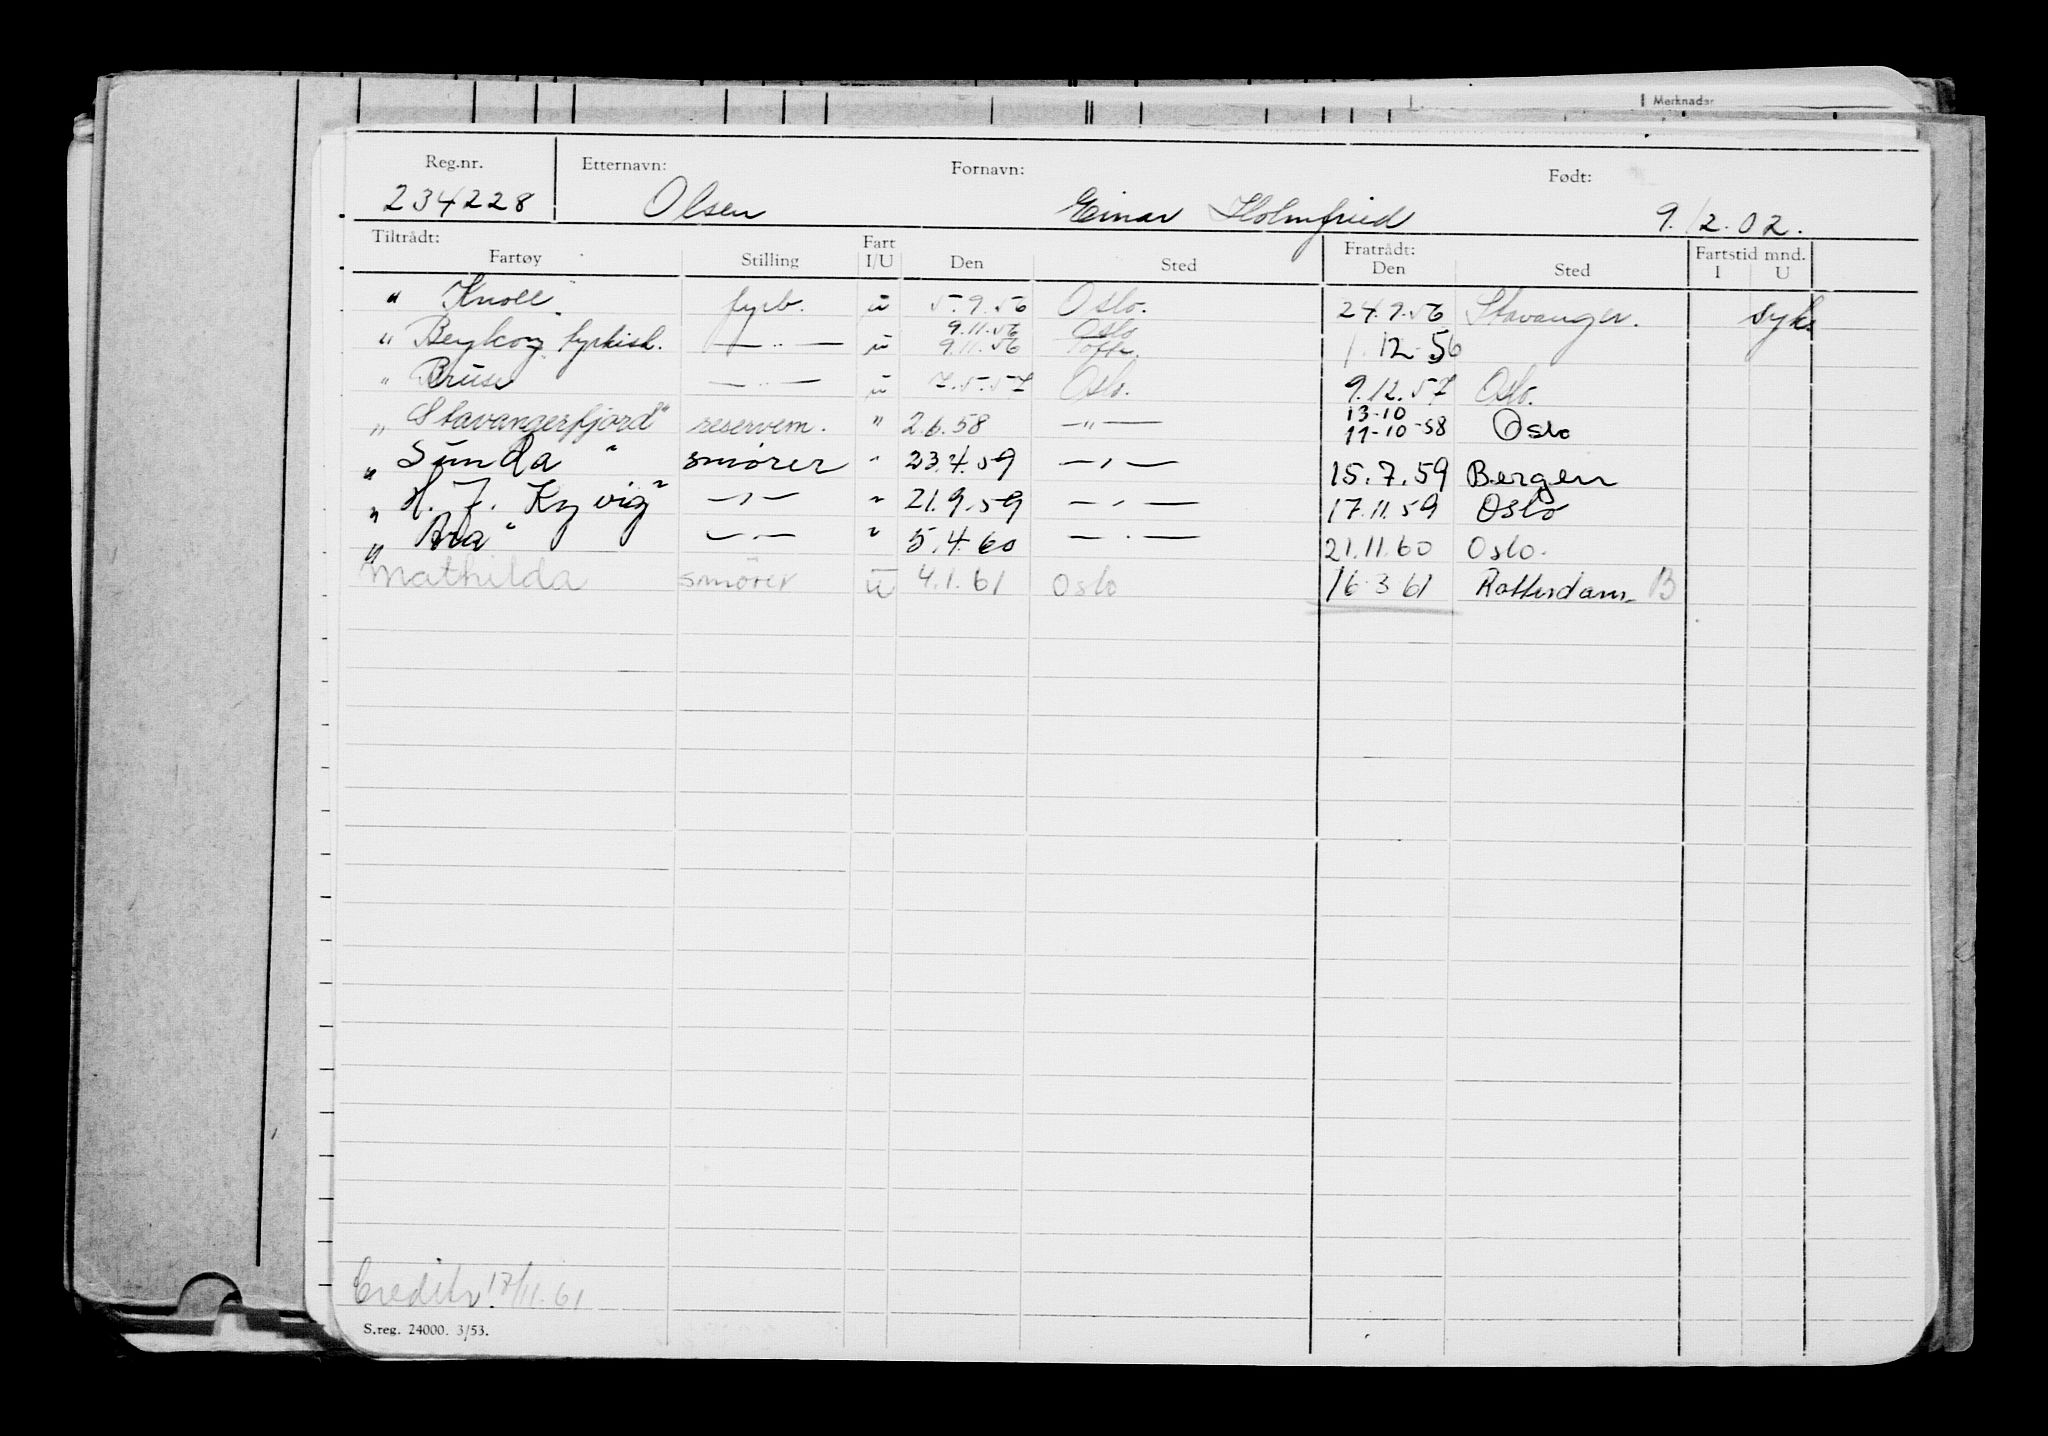 Merknader
Reg.nr. Etternavn: Fornavn: Født:
234228 Olsen Einar Holmfried 9./2.02.
Tiltrådt: Fartøy Stilling Fart I/U Den Sted Fratrådt: Den Sted Fartstid mnd. I U
" Knoll" fyrb. u 5.9.56 Oslo. 24.9.56 Stavanger. syk.
9.11.56 Oslo
" — " — u 9.11.56 1.12-56
" Bruse — " — u 7.5.57 Oslo. 9.12.57 Oslo.
13-10
"Stavangerfjord" reservem. " 2.6.58 — " — 11-10-58 Oslo
"Sunda" smører " 23.4.59 — " — 15.7.59 Bergen
"H. J. Kyvig" — " — " 21.9.59 — " — 17.11.59 Oslo
"Ara" — " — " 5.4.60 — " — 21.11.60 Oslo.
Mathilda smører u 4.1.61 Oslo 16.3 61 Rotterdam B
18/11.61
S.reg. 24000. 3/53.